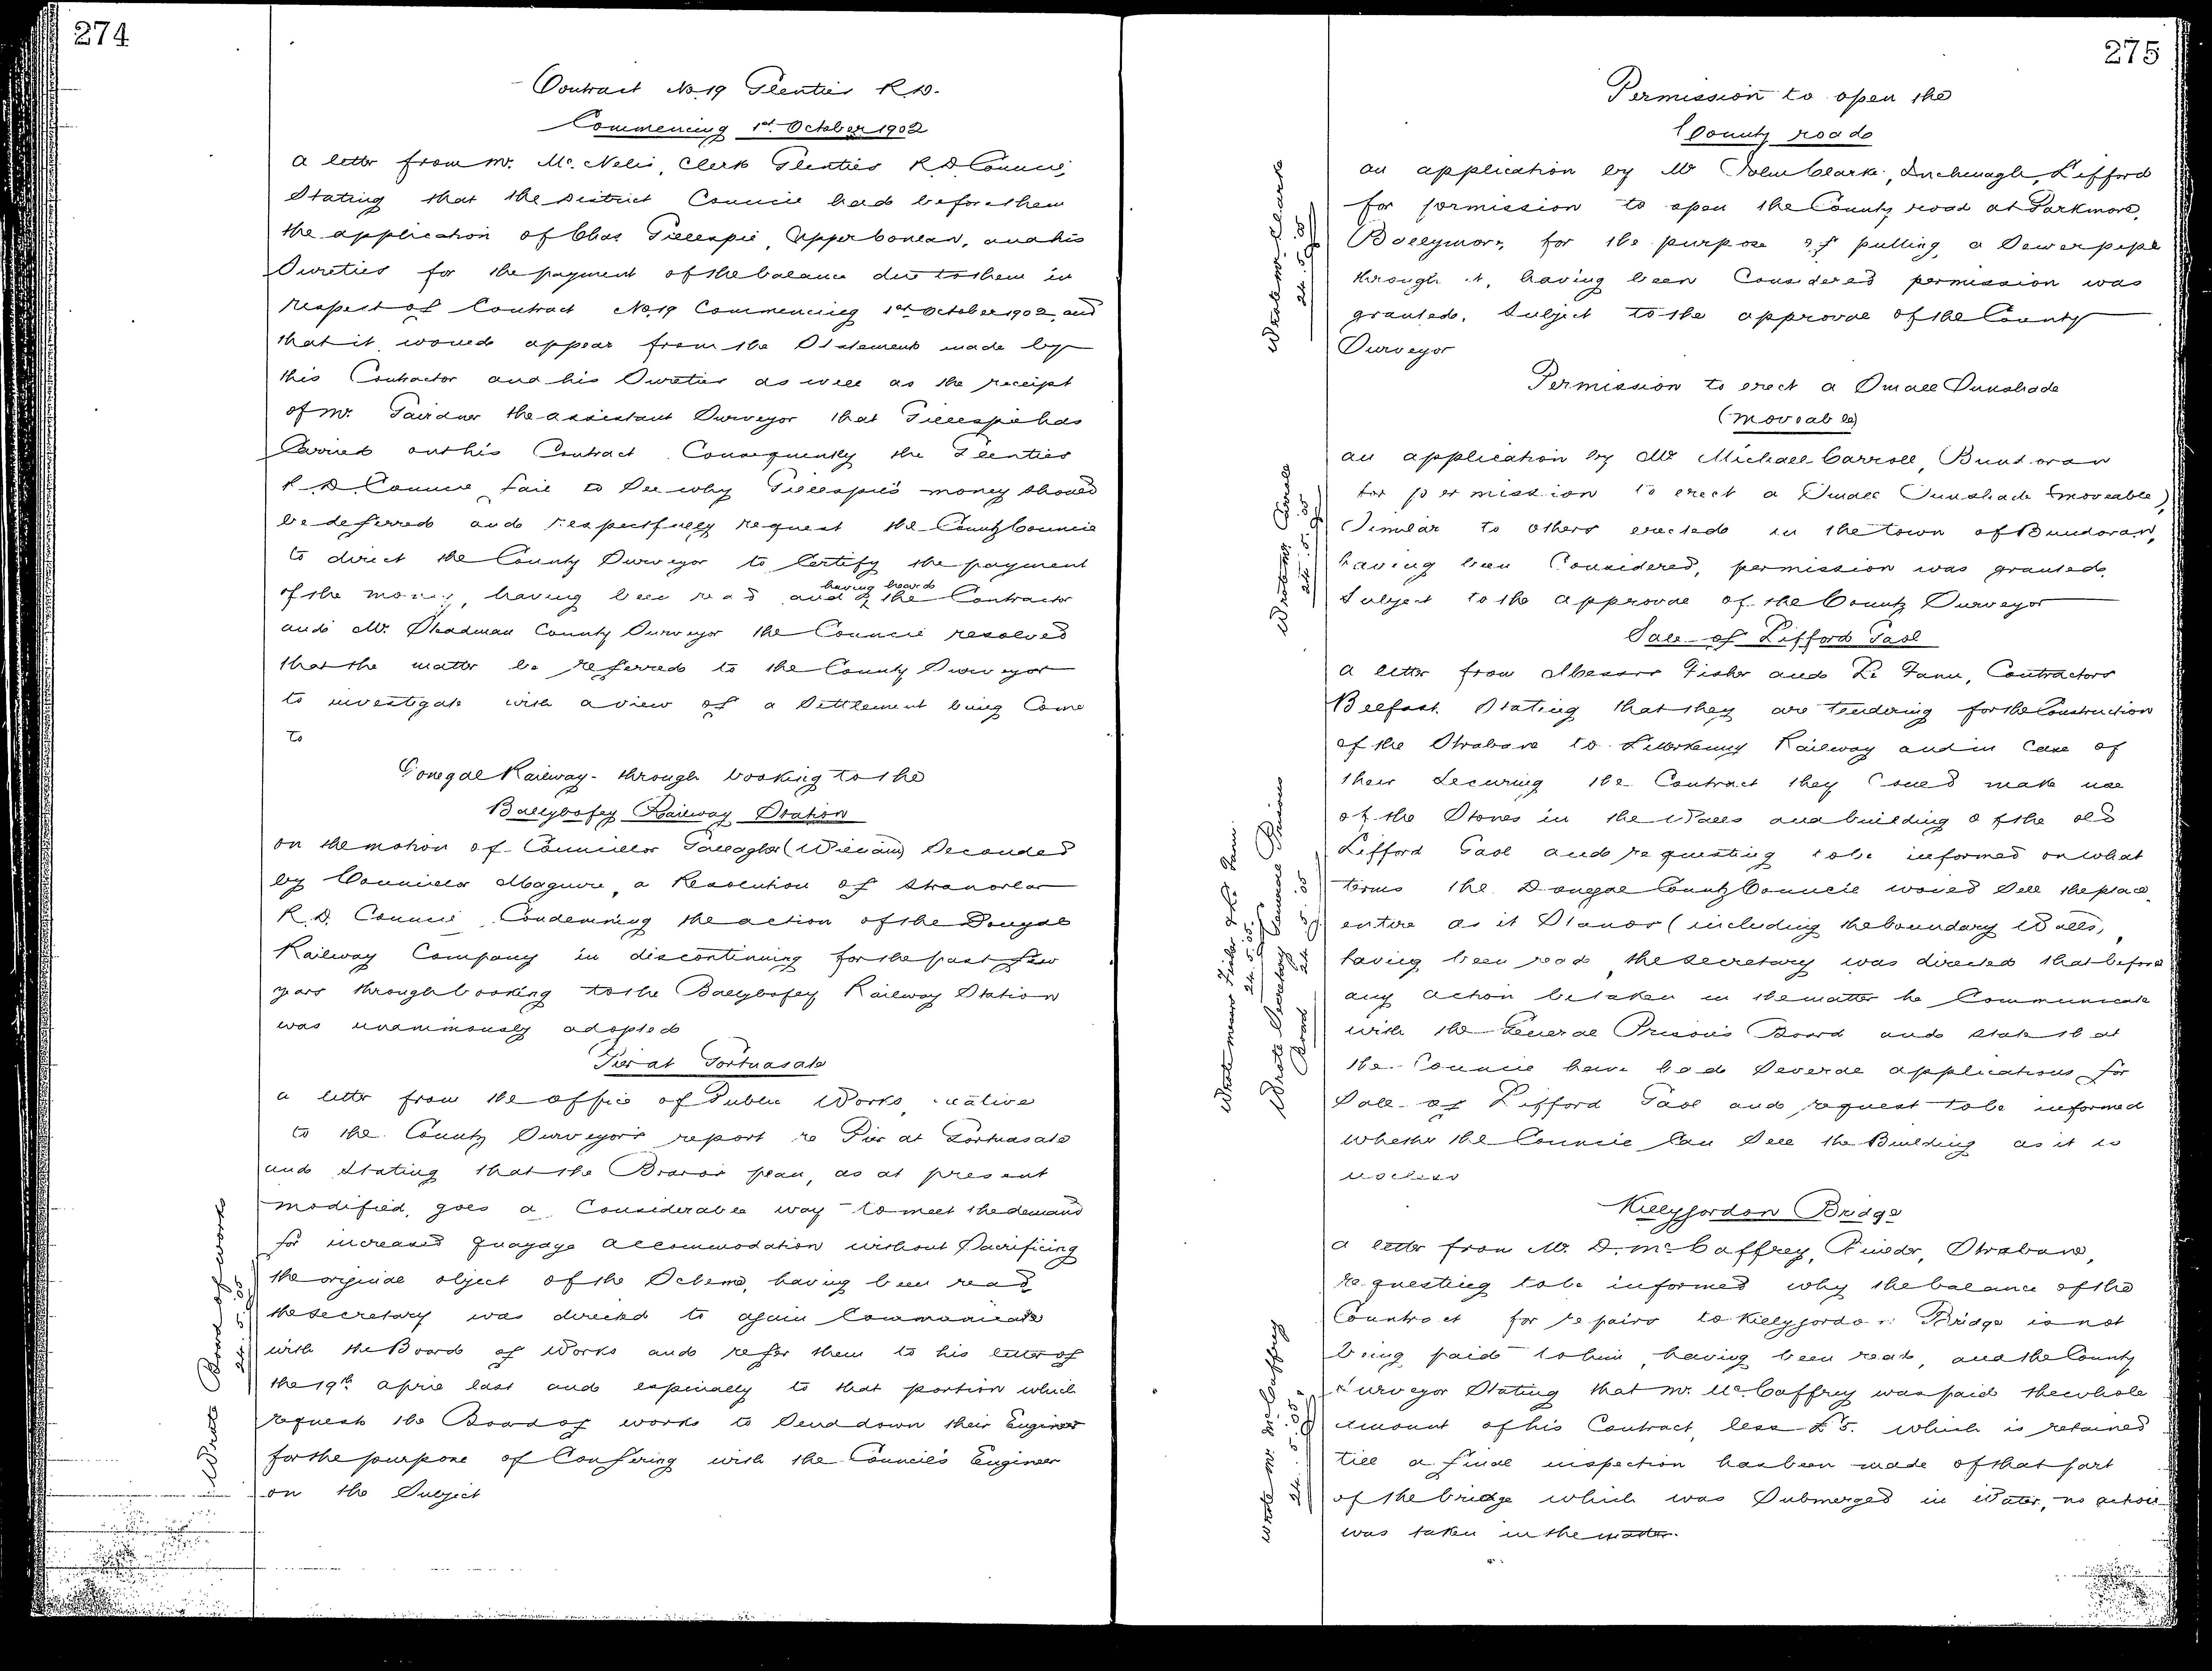 274
Contract No. 19 Glenties R.D.
Commencing 1st October 1902
a letter from Mr. McNelis, Clerk Glenties R.D. Council,
Stating that the District Council had before them
the application of Chas Gillespie, Upper, and his
Sureties for the payment of the balance due to them in
respect of Contract No. 19 Commencing 1st October 1902, and
that it would appear from the Statement made by
this Contractor and his Sureties as well as the receipt
of Mr. Gairdner the assistant Surveyor that Gillespie has
Carried out his Contract. Consequently the Glenties
R.D. Council fail to See why Gillespie's money should
be deferred and respectfully request the County Council
to direct the County Surveyor to Certify the payment
of the money, having been read and having heard the Contractor
and Mr. Steadman County Surveyor the Council resolved
that the matter be referred to the County Surveyor
to investigate with a view of a Settlement being Come
to
Donegal Railway - through booking to the
Ballybofey Railway Station
on the motion of Councillor Gallagher (William) Seconded
by Councillor Maguire, a Resolution of Stranorlar
R.D. Council Condemning the action of the Donegal
Railway Company in discontinuing for the past few
years through booking to the Ballybofey Railway Station
was unanimously adopted
Pier at Portnasate
a letter from the office of Public Works, relative
to the County Surveyor's report re Pier at Portnasate
and Stating that the plan, as at present
modified, goes a Considerable way to meet the demand
for increased quayage accommodation without Sacrificing
the original object of the Scheme, having been read
the Secretary was directed to again Communicate
with the Board of Works and refer them to his letter of
the 19th April last and especially to that portion which
request the Board of works to Send down their Engineer
for the purpose of Confering with the Council's Engineer
on the Subject
Wrote Board of works
24.5.05
275
Permission to open the
County road
an application by Mr John Clarke, Inchenagh, Lifford
for permission to open the County road at Parkmore,
Ballymore, for the purpose of putting a Sewer pipe
through it, having been Considered permission was
granted, Subject to the approval of the County
Surveyor
Wrote Mr Clarke
24.5.05
Permission to erect a Small Sunshade
(moveable)
an application by Mr Michael Carroll, Bundoran
for permission to erect a Small Sunshade (moveable)
Similar to others erected in the town of Bundoran,
having been Considered, permission was granted
Subject to the approval of the County Surveyor
Wrote Mr Carroll
24.5.05
Sale of Lifford Gaol
a letter from Messrs Fisher and Le Fanu, Contractors
Belfast Stating that they are tendering for the Construction
of the Strabane to Letterkenny Railway and in Case of
their Securing the Contract they Could make use
of the Stones in the Walls and building of the old
Lifford Gaol and requesting to be informed on what
terms the Donegal County Council would Sell the place
entire as it Stands (including the boundary Walls,
having been read, the Secretary was directed that before
any action be taken in the matter he Communicate
with the General Prisons Board and State that
the Council have had Several applications for
Sale of Lifford Gaol and request to be informed
whether the Council Can Sell the Building as it is
useless
Wrote Messrs Fisher & Le Fanu
24.5.05.
Wrote Secretary General Prisons
Board 24.5.05
Killygordon Bridge
a letter from Mr. D. McCaffrey, Builder, Strabane,
requesting to be informed why the balance of the
Countract for repairs to Killygordon Bridge is not
being paid to him, having been read, and the County
Surveyor Stating that Mr. McCaffrey was paid the whole
amount of his Contract, less £5. which is retained
till a final inspection has been made of that part
of the bridge which was Submerged in Water, no action
was taken in the matter.
Wrote Mr. McCaffrey
24.5.05